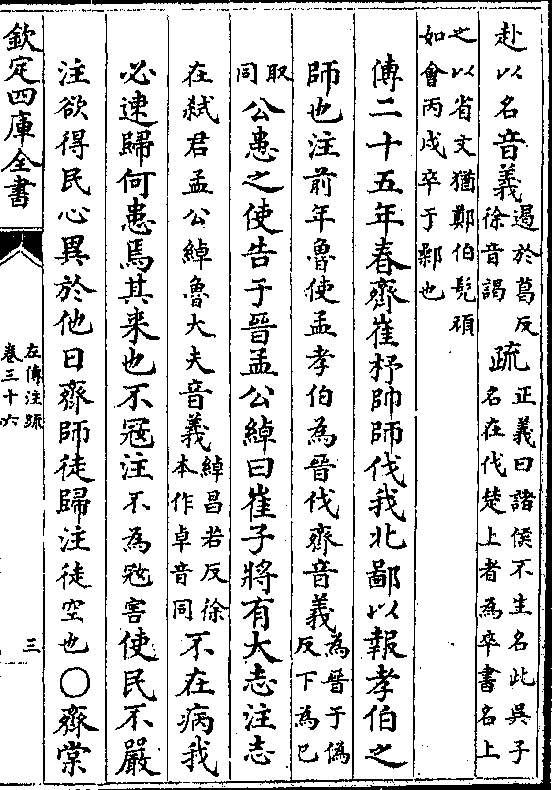 赴以名音義遏於葛反徐音謁疏正義曰諸侯不生名此吳子名在伐楚上者為卒書名上
之以省文猶鄭伯髡頑如會丙戌卒于鄵也
傳二十五年春齊崔杼帥師伐我北鄙以報孝伯之
師也注前年魯使孟孝伯為晉伐齊音義為晉于偽反下為己
取同公患之使告于晉孟公綽曰崔子將有大志注志
在弑君孟公綽魯大夫音義綽昌若反徐本作卓音同不在病我
必速歸何患焉其来也不寇注不為寇害使民不嚴
注欲得民心異於他日齊師徒歸注徒空也○齊棠
欽定四庫全書
左傳注疏
卷三十六
三